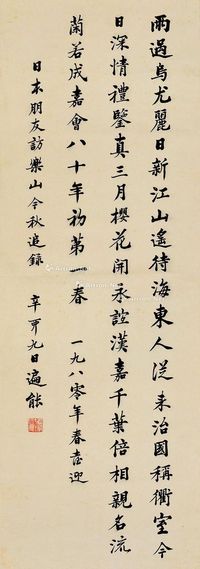 雨過烏尤麗日新江山遙待海東人從来治國稱衢室今
日深情禮鑒真三月櫻花開永誼漢嘉千葉倍相親名流
蘭若成嘉會八十年初第一春 一九八零年春喜迎
日本朋友訪樂山今秋追錄 辛酉九日遍能